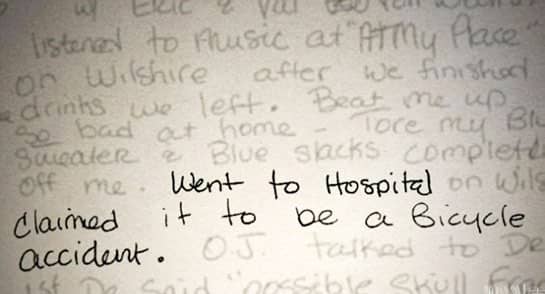 w/ Eric &
listened to Music at "At My Place"
on Wilshire after we finished
drinks we left. Beat me up
so bad at home - Tore my Blu
Sweater & Blue slacks complete
off me. Went to Hospital on Wils
Claimed it to be a Bicycle
accident. O.J. talked to De
1st Dr Said "possible Skull Frac